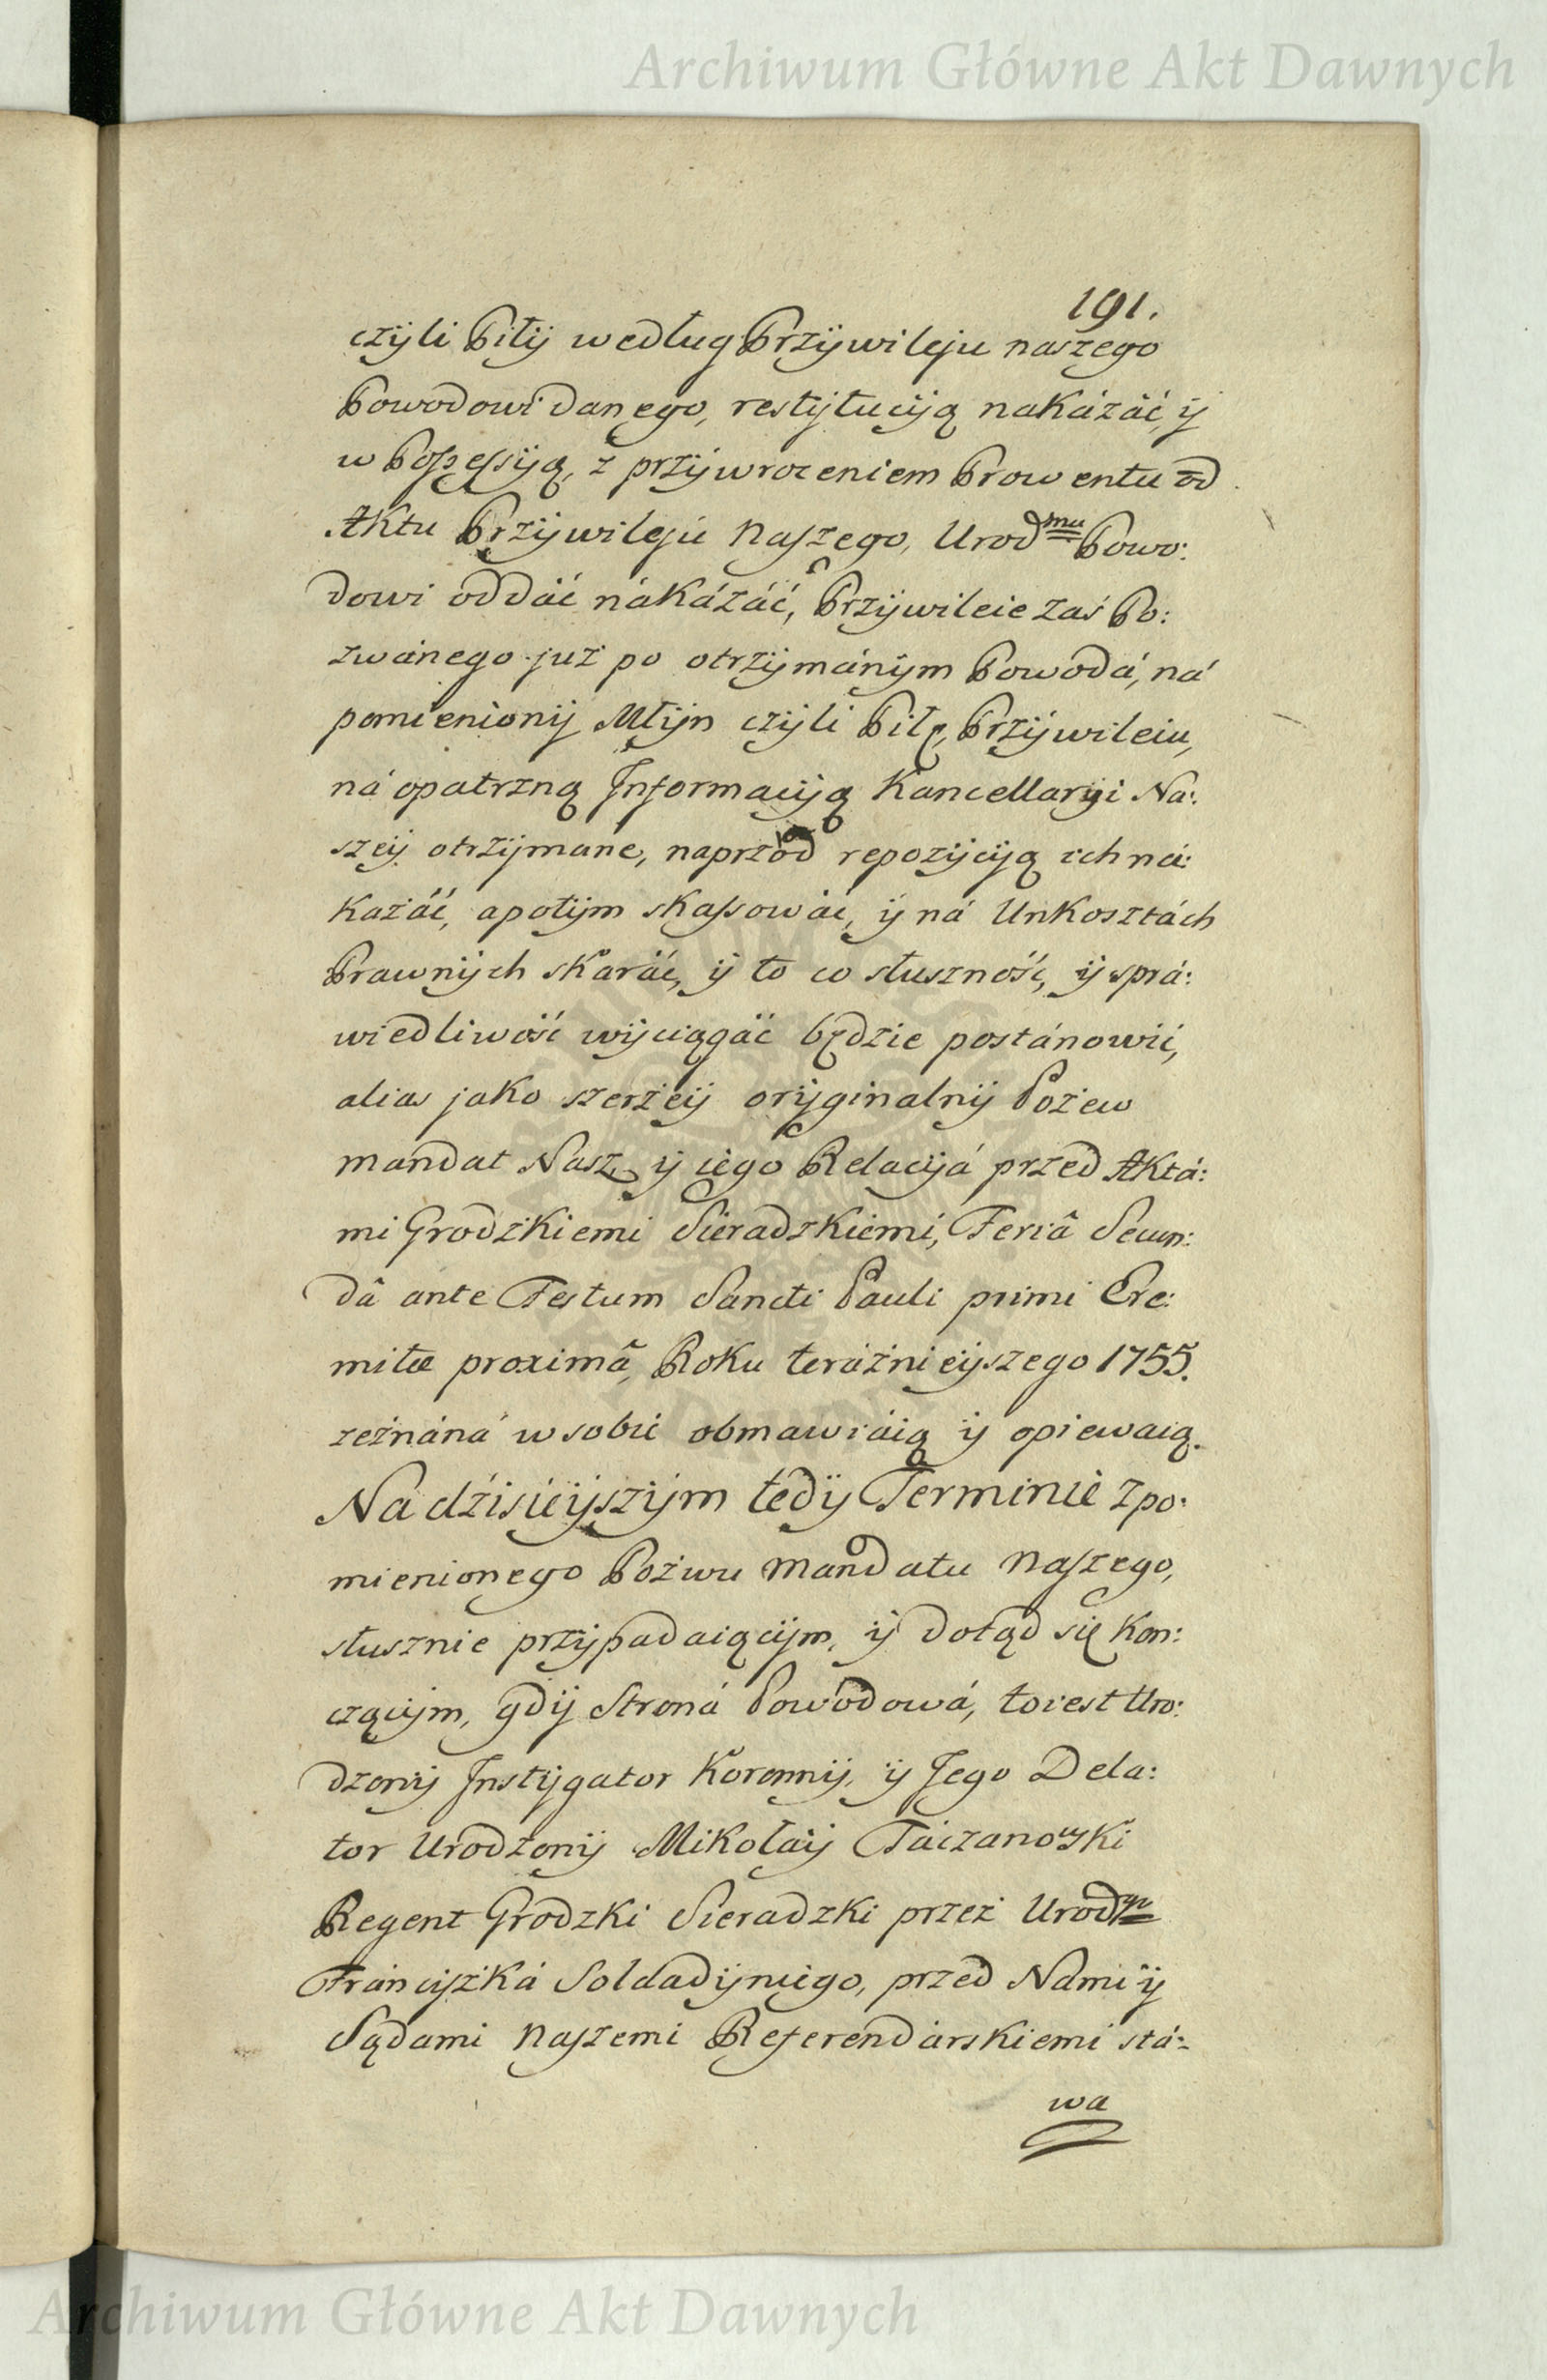 Archiwum Główne Akt Dawnych
191.
czyli Piły według Przywileju naszego
Powodowi danego, restytucyją nakázáć, ÿ
w Possessyją, z przywroceniem Prowentu od
Aktu Przywileju Naszego, Urod<sup>mu</sup> Powo:
dowi oddáć nákázáć, Przywileie zaś Po:
zwánego już po otrzymánym Powodá, ná
pomieniony Młyn czyli Piłę, Przywileiu,
ná opatrzną Informacyją Kancellaryi Na:
szey otrzymane, naprzod repozycyją ich ná:
kazáć, apotym skassowác, ÿ ná Unkosztách
Prawnych skaráć, ÿ to co słuszność, ÿ sprá:
wiedliwość wyciągáć będzie postánowić,
alias jako szerzey oryginalny Pozew
mandat Nasz ÿ iego Relacyjá przed Aktá:
mi Grodzkiemi Sieradzkiemi, Feriâ Secun:
dâ ante Festum Sancti Pauli primi Ere:
mitæ proximâ, Roku teráźnieyszego 1755.
zeznáná w sobie obmawiáią ÿ opiewaią.
Na dzisieyszym tedy Terminie z po:
mienionego Pozwu Mandatu Naszego,
słusznie przypadaiącym, ÿ dotąd się kon:
czącym, gdy Stroná Powodowá, to iest Uro:
dzony Instygator Koronny, ÿ Jego Dela:
tor Urodzony Mikołay Taczanowski
Regent Grodzki Sieradzki przez Urod<sup>go</sup>
Fránciszká Soldadyniego, przed Nami ÿ
Sądami Naszemi Referendarskiemi stá:
wa
Archiwum Główne Akt Dawnych